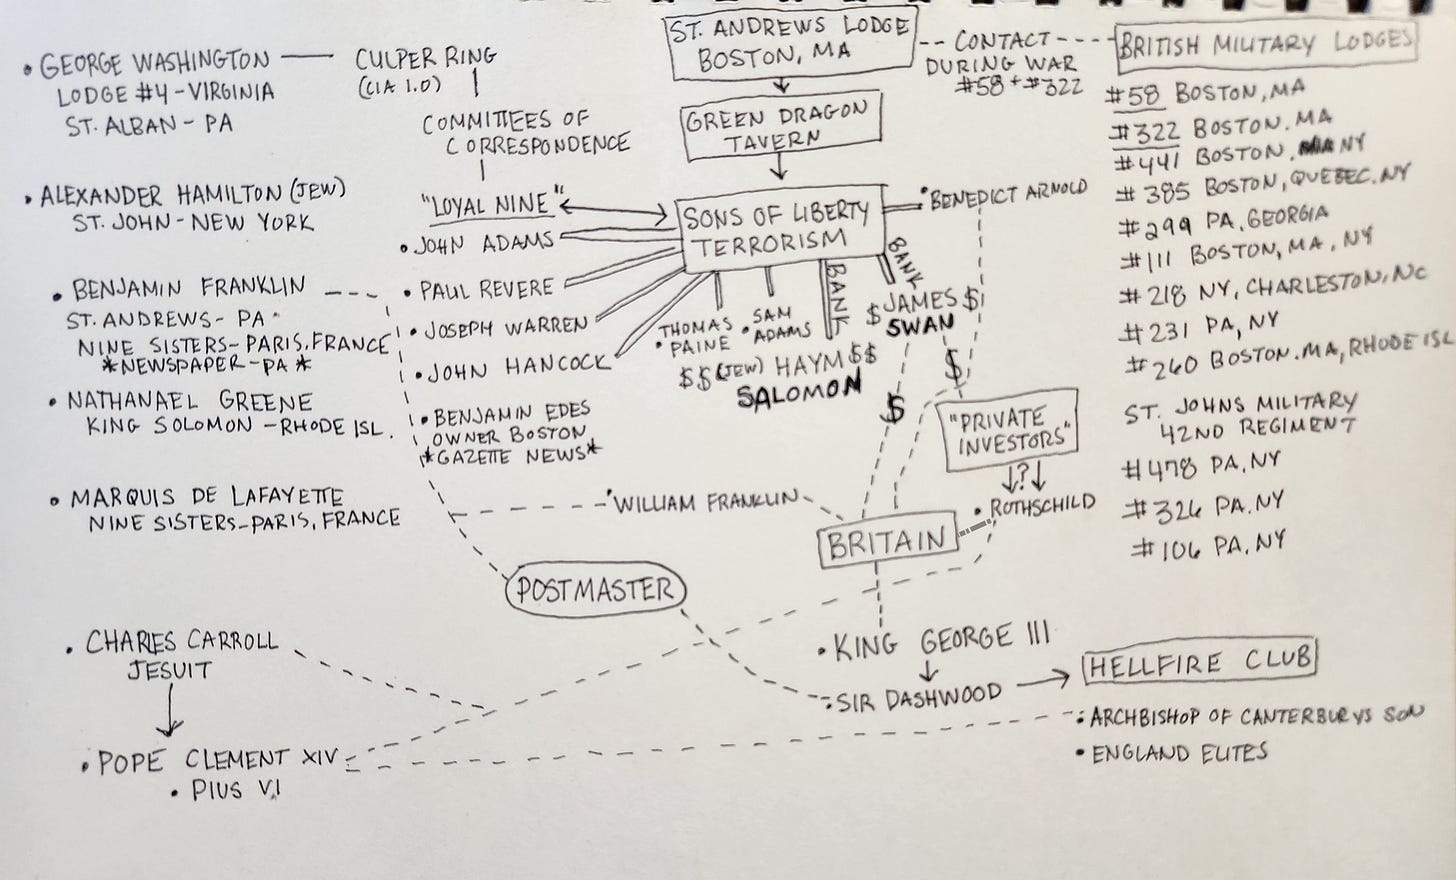 • GEORGE WASHINGTON
LODGE #4 - VIRGINIA
ST. ALBAN - PA
CULPER RING
(CIA 1.0)
COMMITTEES OF
CORRESPONDENCE
"LOYAL NINE"
• JOHN ADAMS
• PAUL REVERE
• JOSEPH WARREN
• JOHN HANCOCK
• BENJAMIN EDES
OWNER BOSTON
*GAZETTE NEWS*
• ALEXANDER HAMILTON (JEW)
ST. JOHN - NEW YORK
• BENJAMIN FRANKLIN
ST. ANDREWS - PA
NINE SISTERS - PARIS, FRANCE
*NEWSPAPER - PA*
• NATHANAEL GREENE
KING SOLOMON - RHODE ISL.
• MARQUIS DE LAFAYETTE
NINE SISTERS - PARIS, FRANCE
• CHARLES CARROLL
JESUIT
• POPE CLEMENT XIV
• PIUS VI
ST. ANDREWS LODGE
BOSTON, MA
GREEN DRAGON
TAVERN
SONS OF LIBERTY
TERRORISM
• BENEDICT ARNOLD
• THOMAS
PAINE
• SAM
ADAMS
BANK
$$ (JEW) HAYM $$
SALOMON
BANK
$ JAMES $
SWAN
$
$
"PRIVATE
INVESTORS"
?
• ROTHSCHILD
• WILLIAM FRANKLIN
BRITAIN
POSTMASTER
• KING GEORGE III
• SIR DASHWOOD
HELLFIRE CLUB
• ARCHBISHOP OF CANTERBURYS SON
• ENGLAND ELITES
CONTACT
DURING WAR
#58 + #322
BRITISH MILITARY LODGES
#58 BOSTON, MA
#322 BOSTON. MA
#441 BOSTON, NY
#385 BOSTON, QUEBEC. NY
#299 PA, GEORGIA
#111 BOSTON, MA, NY
#218 NY, CHARLESTON, NC
#231 PA, NY
#260 BOSTON. MA, RHODE ISL
ST. JOHNS MILITARY
42ND REGIMENT
#478 PA, NY
#326 PA. NY
#106 PA, NY